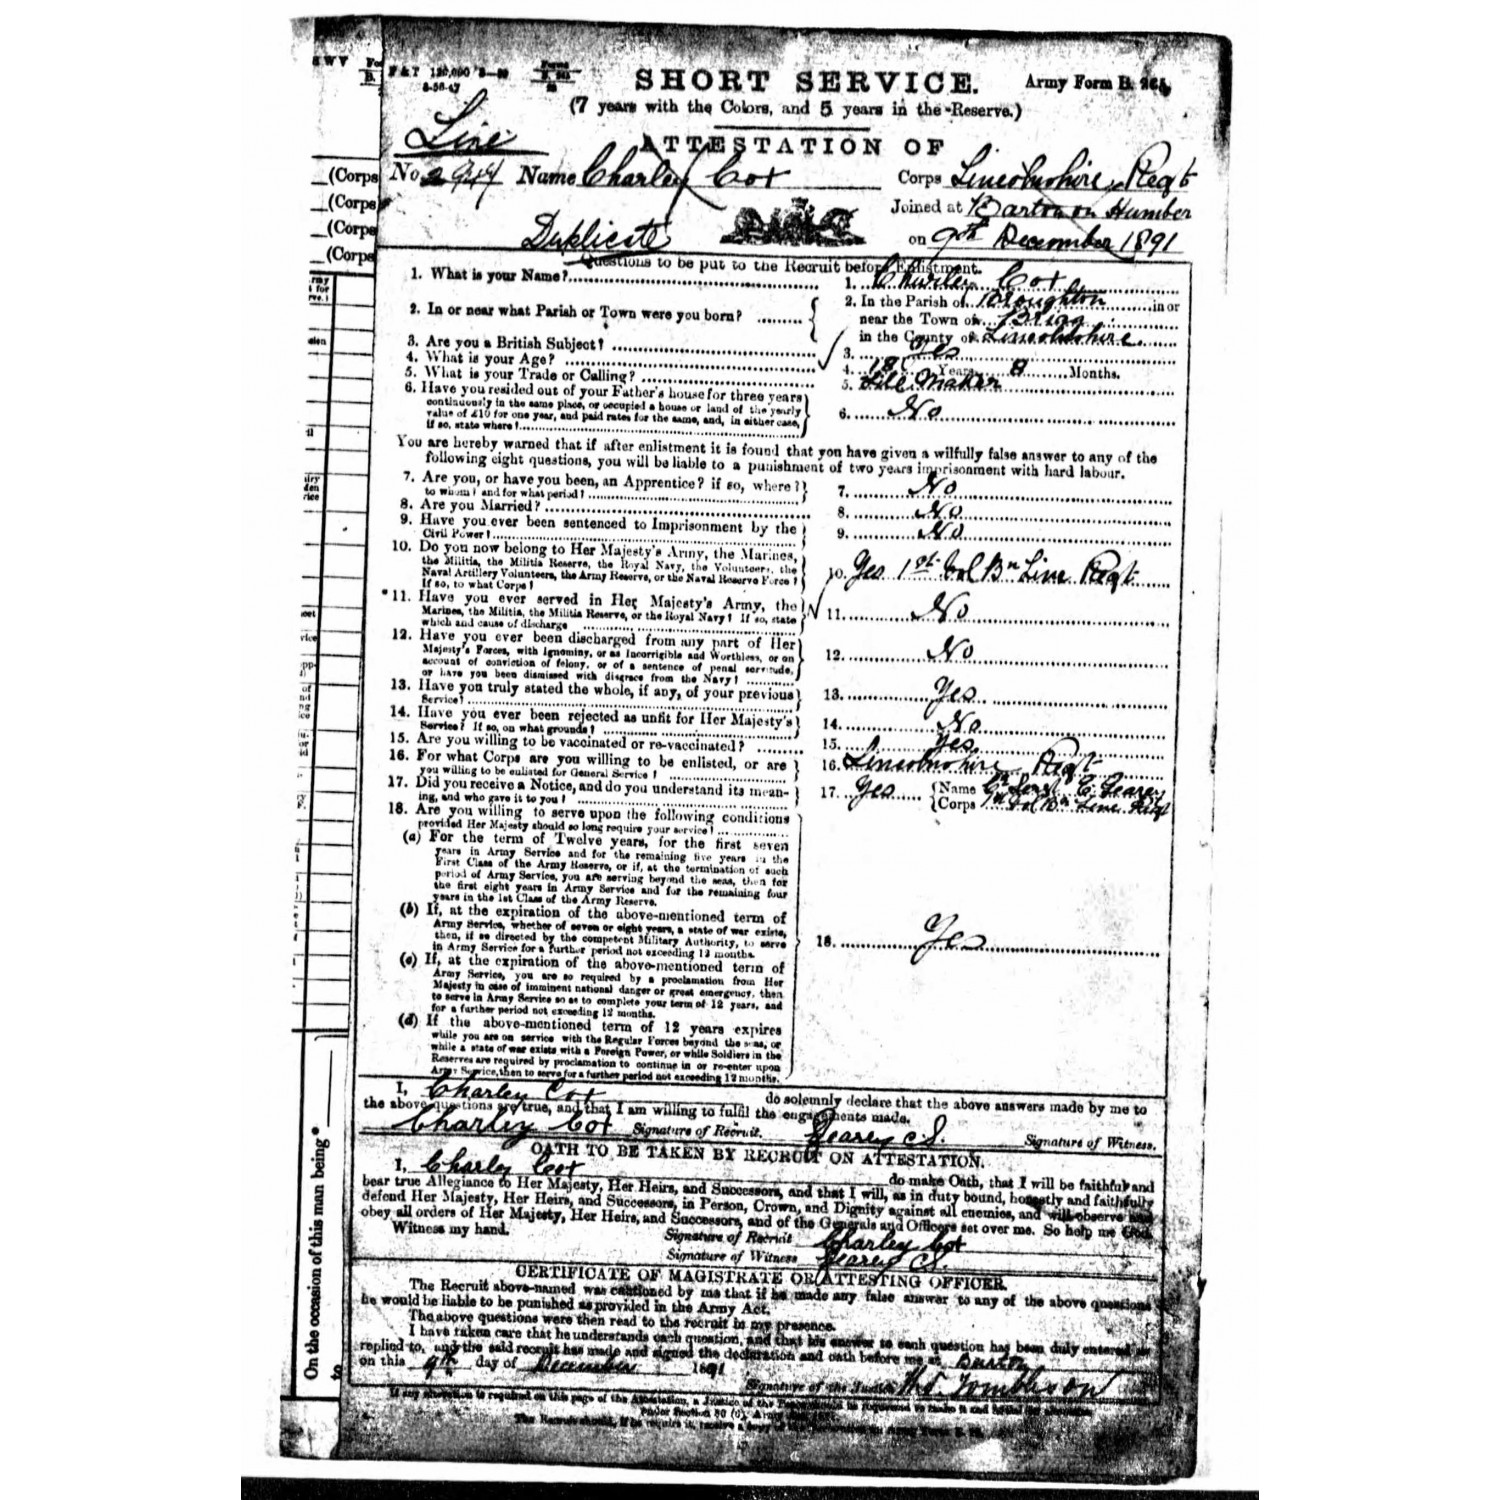 F & T 120,000
SHORT SERVICE.
Army Form B. 265.
(7 years with the Colors, and 5 years in the Reserve.)
Line
ATTESTATION OF
No Name Charley Cox Corps Lincolnshire Regt
Joined at Barton on Humber
Duplicate
on 9th December 1891
Questions to be put to the Recruit before Enlistment.
1. What is your Name? 1. Charley Cox
2. In or near what Parish or Town were you born? 2. In the Parish of Broughton in or
near the Town of Brigg
in the County of Lincolnshire
3. Are you a British Subject? 3. Yes
4. What is your Age? 4. 18 Years 8 Months.
5. What is your Trade or Calling? 5. Maker
6. Have you resided out of your Father's house for three years
continuously in the same place, or occupied a house or land of the yearly
value of £10 for one year, and paid rates for the same, and, in either case,
if so, state where? 6. No
You are hereby warned that if after enlistment it is found that you have given a wilfully false answer to any of the
following eight questions, you will be liable to a punishment of two years imprisonment with hard labour.
7. Are you, or have you been, an Apprentice? if so, where?
to whom? and for what period? 7. No
8. Are you Married? 8. No
9. Have you ever been sentenced to Imprisonment by the
Civil Power? 9. No
10. Do you now belong to Her Majesty's Army, the Marines,
the Militia, the Militia Reserve, the Royal Navy, the Volunteers, the
Naval Artillery Volunteers, the Army Reserve, or the Naval Reserve Force?
If so, to what Corps? 10. Yes 1st Vol Bn Linc Regt
*11. Have you ever served in Her Majesty's Army, the
Marines, the Militia, the Militia Reserve, or the Royal Navy? If so, state
which and cause of discharge 11. No
12. Have you ever been discharged from any part of Her
Majesty's Forces, with Ignominy, or as Incorrigible and Worthless, or on
account of conviction of felony, or of a sentence of penal servitude,
or have you been dismissed with disgrace from the Navy? 12. No
13. Have you truly stated the whole, if any, of your previous
Service? 13. Yes
14. Have you ever been rejected as unfit for Her Majesty's
Service? If so, on what grounds? 14. No
15. Are you willing to be vaccinated or re-vaccinated? 15. Yes
16. For what Corps are you willing to be enlisted, or are
you willing to be enlisted for General Service? 16. Lincolnshire Regt
17. Did you receive a Notice, and do you understand its mean-
ing, and who gave it to you? 17. Yes Name
Corps 1st Vol Bn Linc Regt
18. Are you willing to serve upon the following conditions
provided Her Majesty should so long require your service?
(a) For the term of Twelve years, for the first seven
years in Army Service and for the remaining five years in the
First Class of the Army Reserve, or if, at the termination of such
period of Army Service, you are serving beyond the seas, then for
the first eight years in Army Service and for the remaining four
years in the 1st Class of the Army Reserve.
(b) If, at the expiration of the above-mentioned term of
Army Service, whether of seven or eight years, a state of war exists,
then, if so directed by the competent Military Authority, to serve
in Army Service for a further period not exceeding 12 months.
18. Yes
(c) If, at the expiration of the above-mentioned term of
Army Service, you are so required by a proclamation from Her
Majesty in case of imminent national danger or great emergency, then
to serve in Army Service so as to complete your term of 12 years, and
for a further period not exceeding 12 months.
(d) If the above-mentioned term of 12 years expires
while you are on service with the Regular Forces beyond the seas, or
while a state of war exists with a Foreign Power, or while Soldiers in the
Reserves are required by proclamation to continue in or re-enter upon
Army Service, then to serve for a further period not exceeding 12 months.
I, Charley Cox do solemnly declare that the above answers made by me to
the above questions are true, and that I am willing to fulfil the engagements made.
Charley Cox Signature of Recruit. Signature of Witness.
OATH TO BE TAKEN BY RECRUIT ON ATTESTATION.
I, Charley Cox do make Oath, that I will be faithful and
bear true Allegiance to Her Majesty, Her Heirs, and Successors, and that I will, as in duty bound, honestly and faithfully
defend Her Majesty, Her Heirs, and Successors, in Person, Crown, and Dignity against all enemies, and will observe and
obey all orders of Her Majesty, Her Heirs, and Successors, and of the Generals and Officers set over me. So help me God.
Witness my hand.
Signature of Recruit Charley Cox
Signature of Witness
CERTIFICATE OF MAGISTRATE OR ATTESTING OFFICER.
The Recruit above-named was cautioned by me that if he made any false answer to any of the above questions
he would be liable to be punished as provided in the Army Act.
The above questions were then read to the recruit in my presence.
I have taken care that he understands each question, and that his answer to each question has been duly entered as
replied to, and the said recruit has made and signed the declaration and oath before me at Barton
on this 9th day of December 1891
Signature of the Justice
On the occasion of this man being *
(Corps
(Corps
(Corps
(Corps